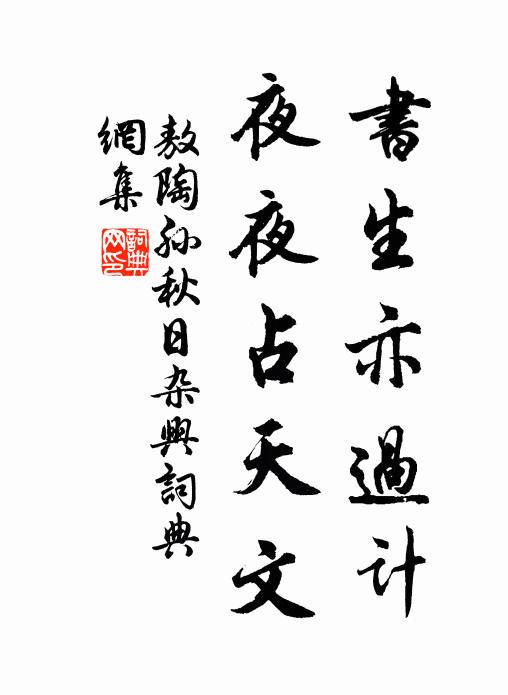 書生亦過计
夜夜占天文
敖陶孙秋日杂興詞典
網集
詞典
网印